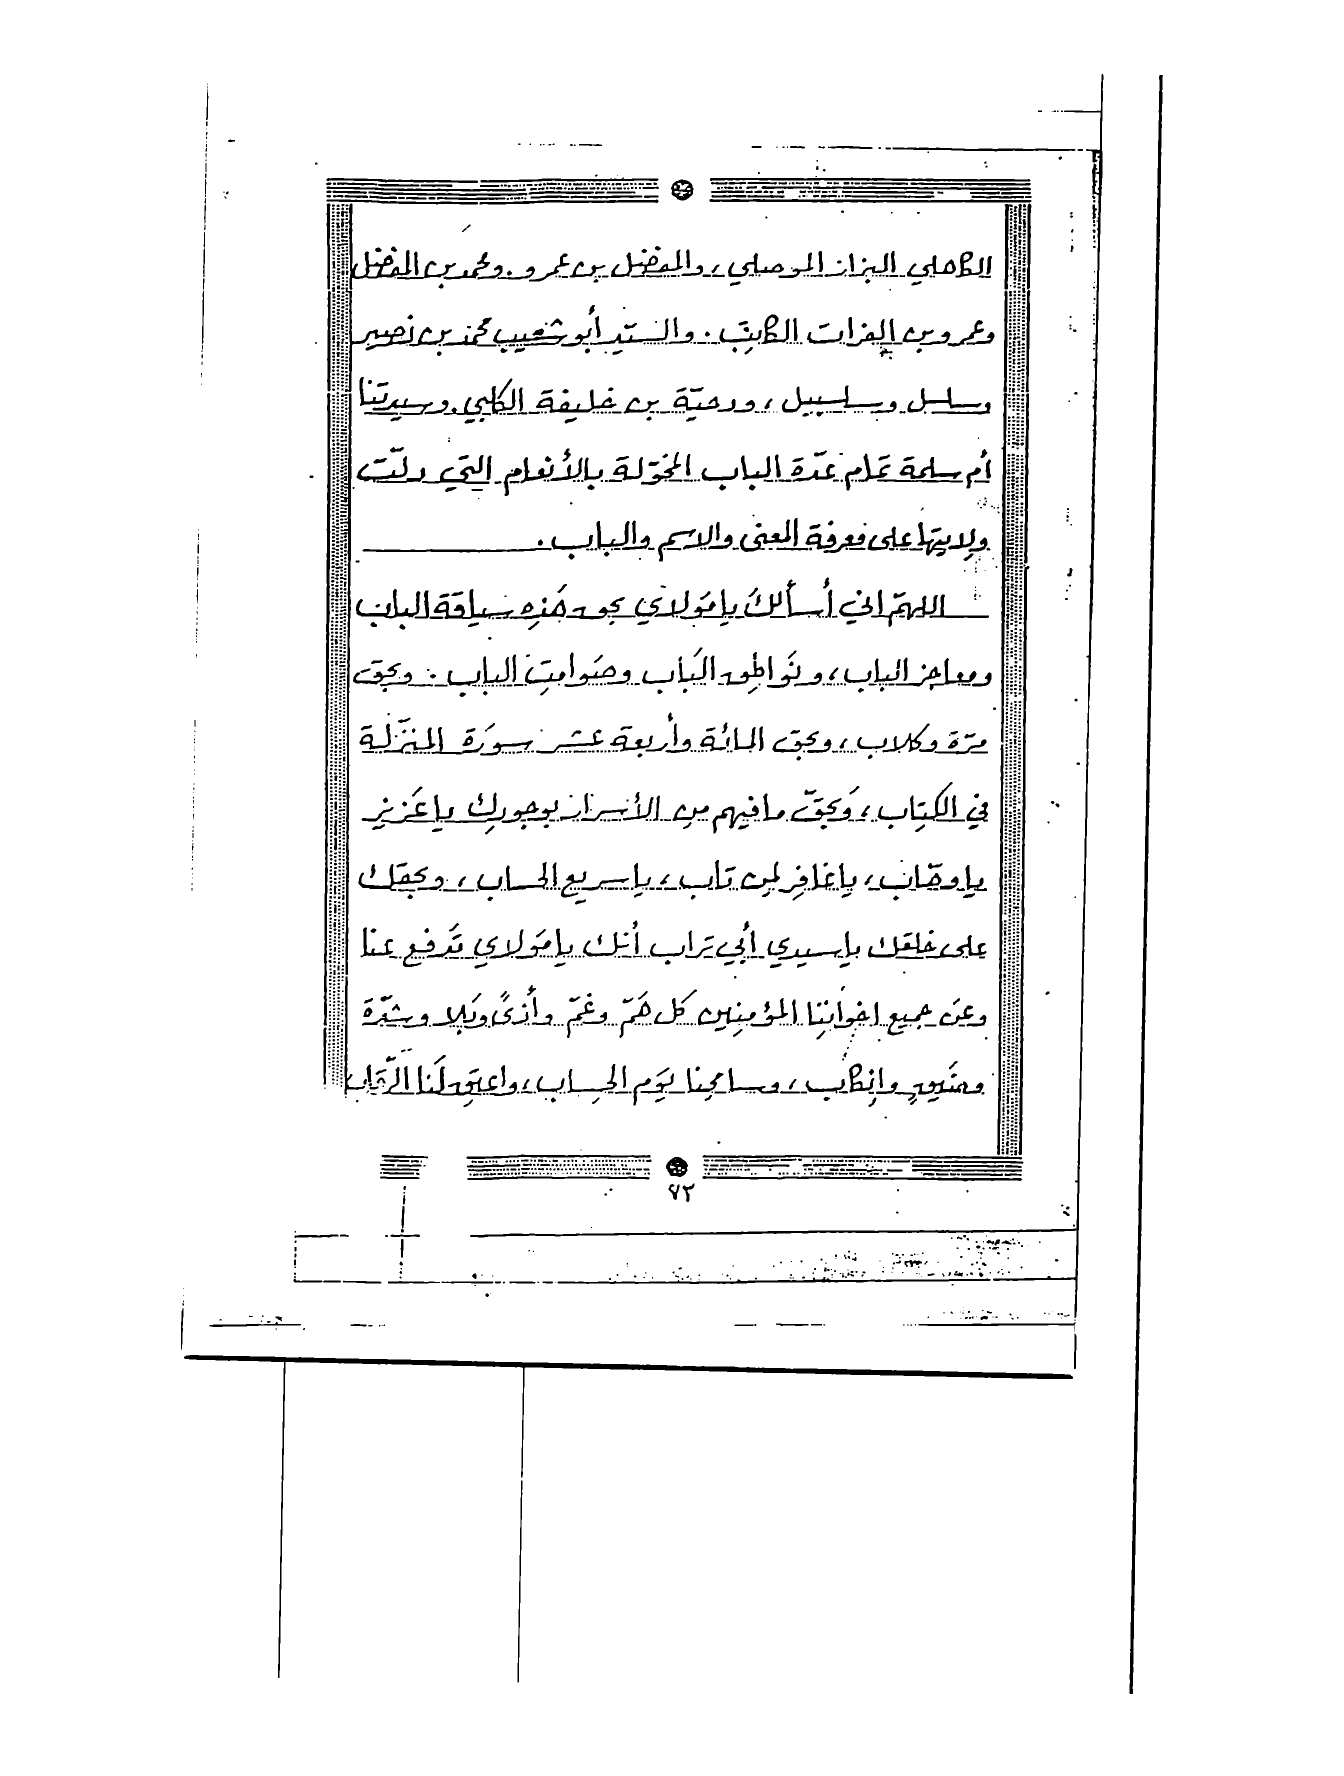 الكاهلي البزاز الموصلي، والمفضل بن عمرو. ومحمد بن المفضل
وعمرو بن الفرات الكاتب. والسيّد أبو شعيب محمد بن نصير
وسلسل وسلسبيل، ودحيّة بن خليفة الكلبي. وسيدتنا
أم سلمة تمام عدّة الباب المخوّلة بالأنعام التي دلّت
ولايتها على معرفة المعنى والاسم والباب.
اللهمّ اني أسألك يا مَولاي بحق هَذه سياقة الباب
ومعاجز الباب، ونَواطق البَاب وصَوامت الباب. وبحق
مرّة وكلاب، وبحق المائة وأربعة عشر سورَة المنزّلة
في الكتِاب، وَبحقّ ما فيهم من الأسرار بوجودك يا عَزيز
يا وهّاب، يا غافِر لمن تاب، يا سريع الحساب، وبحقك
على خلقك يا سيدي أبي تراب أنك يا مَولاي تَدفع عنا
وعَن جميع اخوَاننِا المؤمنِين كل هَمّ وغمّ وأذىً وبَلا وشدّة
وضَيق وانكاب، وسامحنا يَوم الحساب، واعتِق لَنا الرّقاب
٧٢